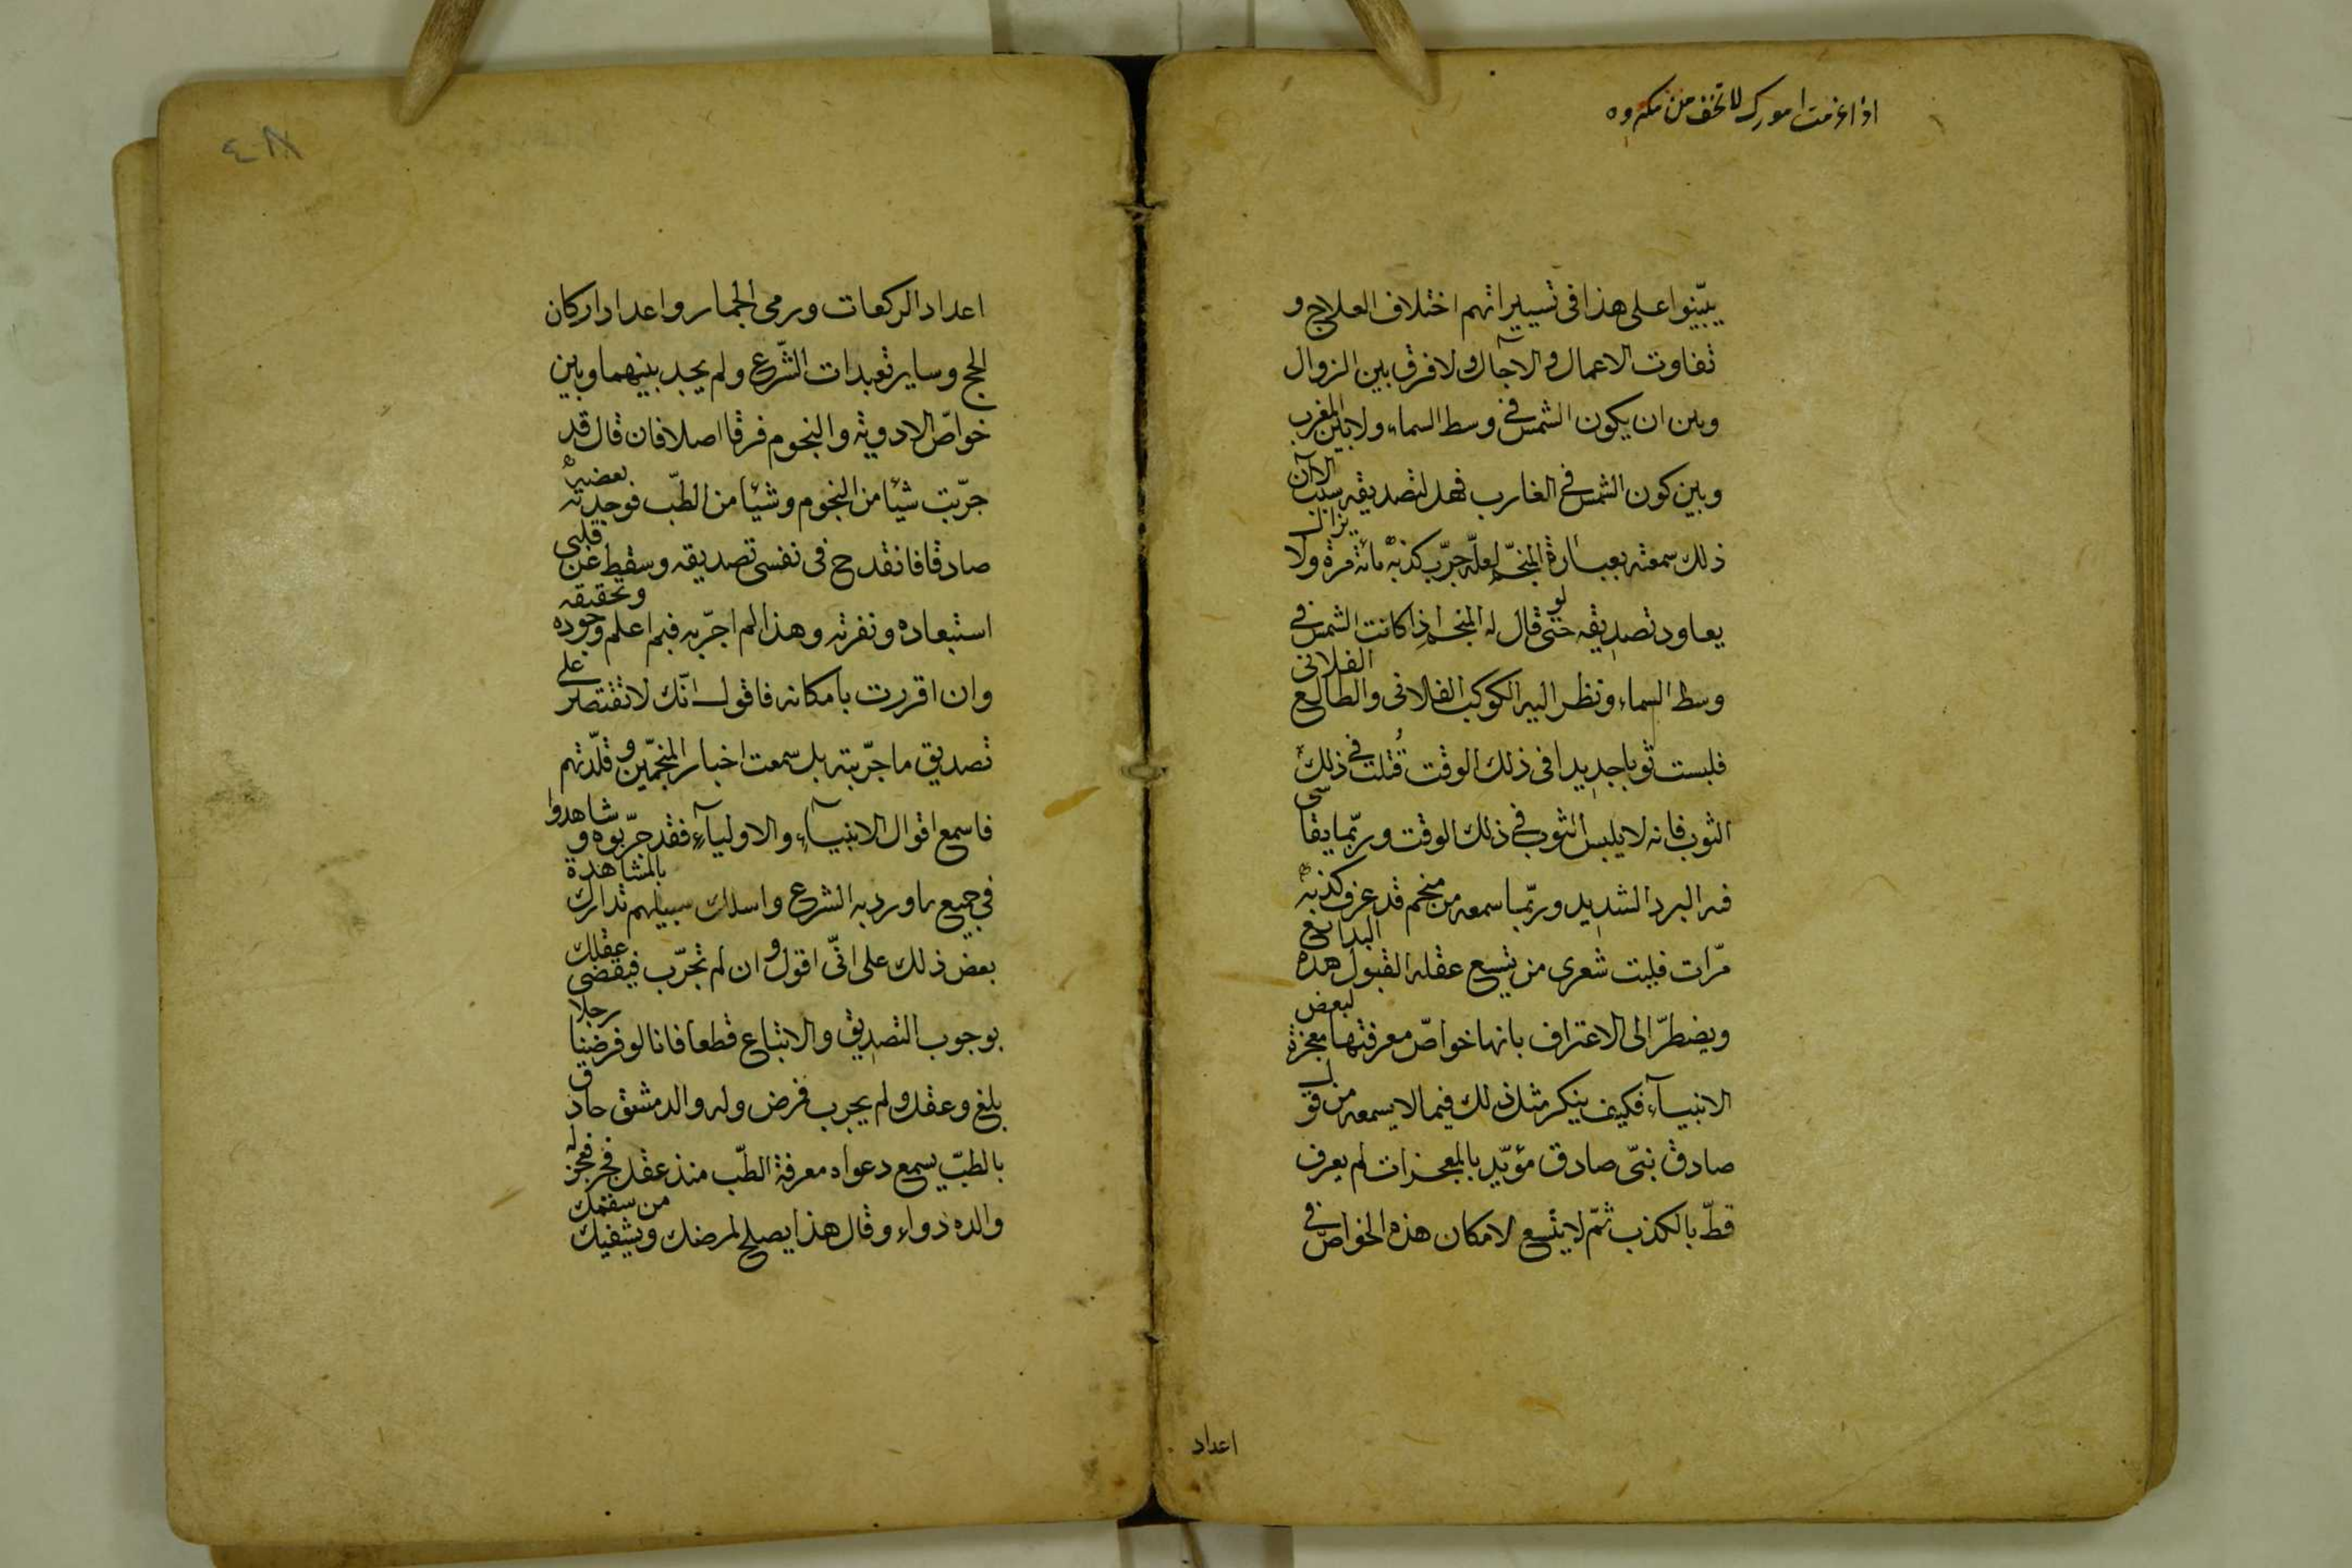 اذا اعزمت امورك لا تخف من مكروه
يبّينوا على هذا فى تسييراتهم اختلاف العلاج و
تفاوت الاعمال والآجال ولا فرق بين الزوال
وبين ان يكون الشمس فى وسط السماء ولا بين المغرب
وبين كون الشمس فى الغارب فهل لتصديقه سبب الا ان
ذلك سمعته بعبارة المنجّم لعلّه جرّب كذبه مائة مرة ولا يزال
يعاود تصديقه حتى لو قال له المنجم اذا كانت الشمس فى
وسط السماء ونظر اليه الكوكب الفلانى والطالع الفلانى
فلبست ثوبا جديدا فى ذلك الوقت قُتلت فى ذلك
الثوب فانه لا يلبس الثوب فى ذلك الوقت وربّما يقاسى
فيه البرد الشديد وربّما سمعه من منجم قد عرف كذبه
مرّات فليت شعرى من يتسع عقله لقبول هذه البدائع
ويضطرّ الى الاعتراف بانها خواصّ معرفتها معجزة لبعض
الانبيآء فكيف ينكر مثل ذلك فيما لا يسمعه من قول
صادق نبىّ صادق مؤيّد بالمعجزات لم يعرف
قطّ بالكذب ثمّ لا يتّسع لامكان هذه الخواصّ فى
اعداد
٤٨
اعداد الركعات ورمى الجمار واعداد اركان
الحج وساير تعبدات الشّرع ولم يجد بينهما وبين
خواصّ الادوية والنجوم فرقا اصلا فان قال قد
جرّبت شيئا من النجوم وشيئا من الطبّ فوجدت بعضه
صادقا فانقدح فى نفسى تصديقه وسقط عن قلبى
استبعاده ونفرته وهذا لم اجرّبه فبم اعلم وجوده وتحقيقه
وان اقررت بامكانه فاقول انّك لا تقتصر على
تصديق ما جرّبته بل سمعت اخبار المنجّمين وقلّدتهم
فاسمع اقوال الانبيآء والاوليآء فقد جرّبوه وشاهدوا
فى جميع ما ورد به الشرع واسلك سبيلهم تدارك بالمشاهدة
بعض ذلك على انّى اقول وان لم تجرّب فيقضى عقلك
بوجوب التصديق والاتباع قطعا فانا لو فرضنا رجلا
بلغ وعقل ولم يجرب فمرض وله والد مشفق حاذق
بالطبّ يسمع دعواه معرفة الطبّ منذ عقل فعجن له
والده دواء وقال هذا يصلح لمرضك ويشفيك من سقمك